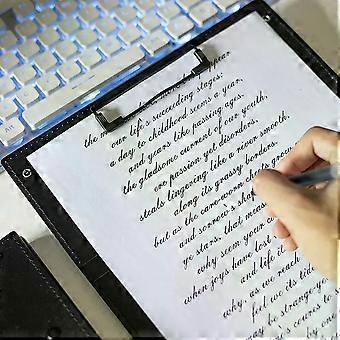 the m appear
our life's succeeding stages:
a day to childhood seems a year,
and years like passing ages.
the gladsome current of our youth,
ere passion yet disorders,
steals lingering like a river smooth,
along its grassy borders.
but as the care-worn cheek grow
and sorrow's shaf
ye stars, that meas
why seem your
when joys have lost
and life it
why, as we reach
feel we its ti
ay be strange-ye
's course to s